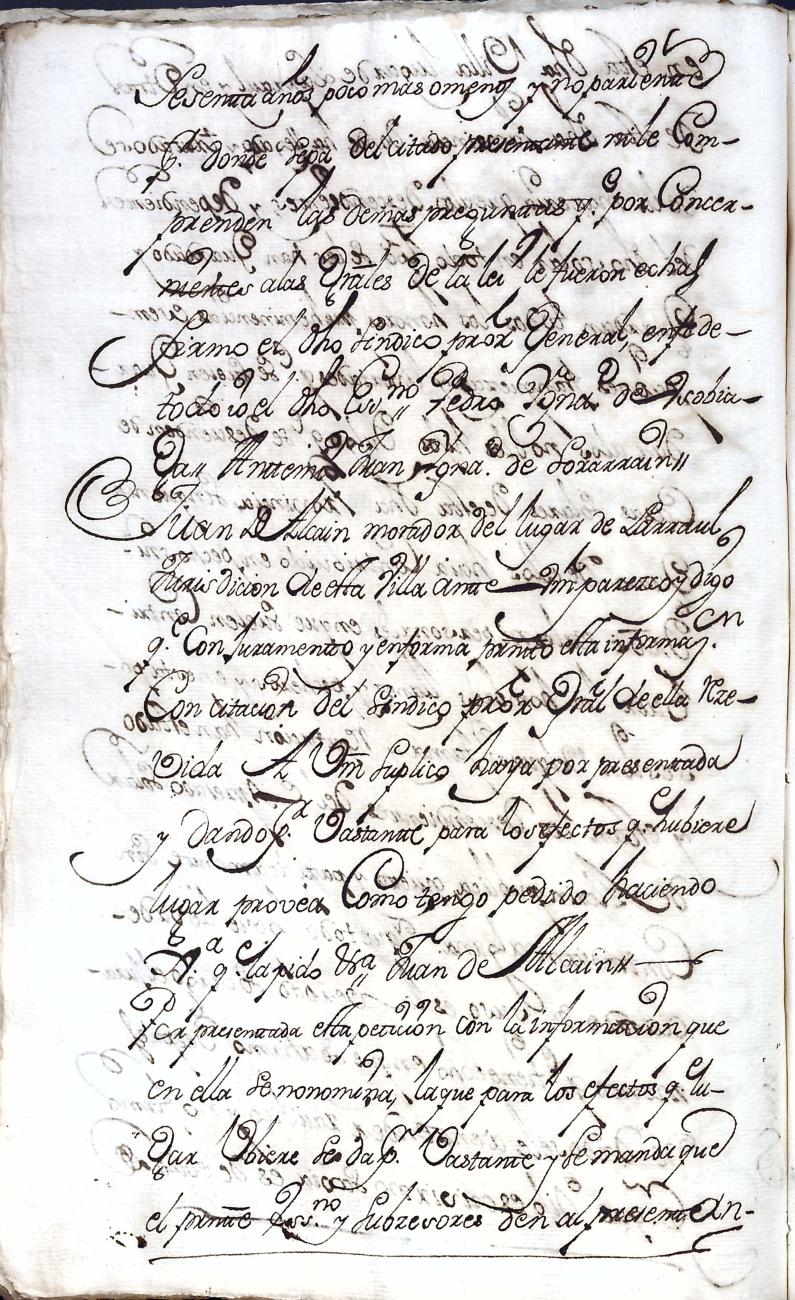 Sesenta años poco mas omenos y no pariente
q. donde sepa del citado presentante ni le Com-
prenden las demas preguntas q.e por Concer-
nientes alas Grales de la lei le fueron echas
firmo el dho sindico pror General, enfe de-
todo io el dho Essno Pedro Igna.o de
Antemi Juan Igna.o de Lorarrain
Juan de Alcain morador del lugar de Larraul
Jurisdicion de esta Villa ante Vm parezco y digo
q.e Con Juramento y enforma prnto esta informaz.on
Con citacion del sindico pror Gral de ella Rze-
vida A Vm suplico haya por presentada
y dando p.r Vastante para los efectos q.e hubiere
lugar provea Como tengo pedido haciendo
q.e la pido &ra Juan de Alcain
Por presentada esta peticion con la informacion que
en ella se nonomina, la que para los efectos q.e lu-
gar Ubiere se da p.r Vastante y se manda que
el prnte Essno y subcesores den al presentan-